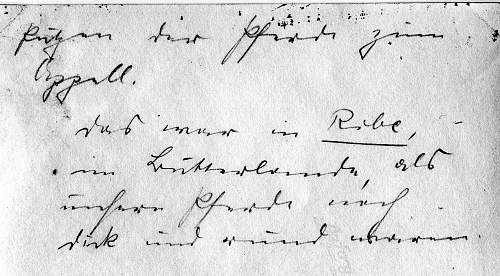 Putzen der Pferde zum
Appell.
Das war in Ribe,
im Butterlande, als
unsere Pferde noch
dick und rund waren.